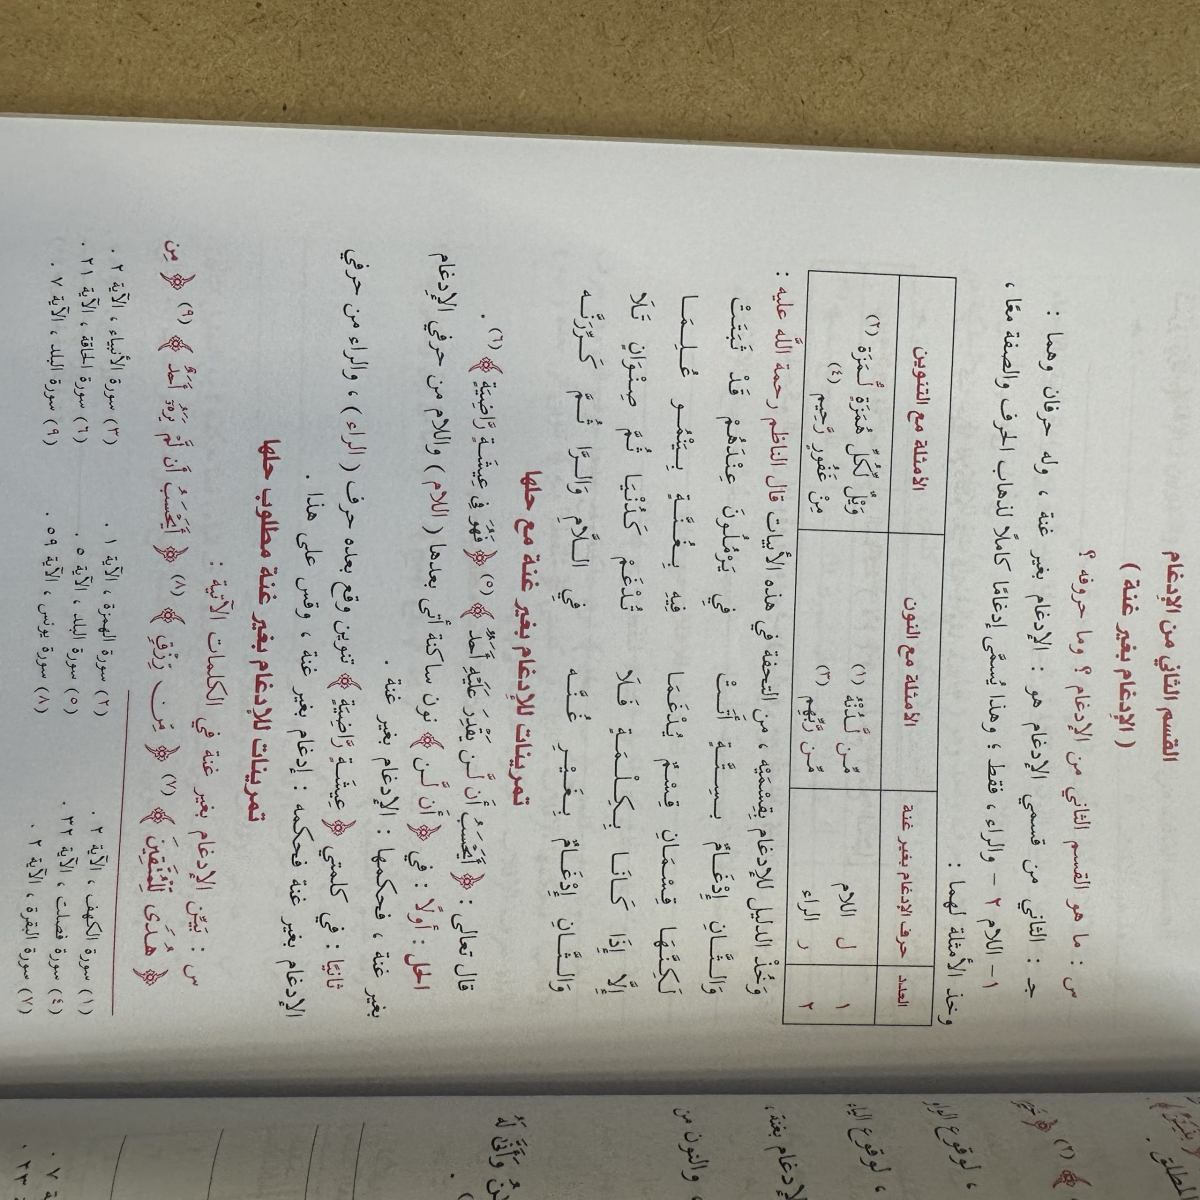 القسم الثاني من الإدغام
( الإدغام بغير غنة )
س : ما هو القسم الثاني من الإدغام ؟ وما حروفه ؟
جـ : الثاني من قسمي الإدغام هو : الإدغام بغير غنة ، وله حرفان وهما :
١ – اللام ٢ – والراء ، فقط ، وهذا يُسمَّى إدغامًا كاملًا لذهاب الحرف والصفة معًا ،
وخذ الأمثلة لهما :
العدد حرف الإدغام بغير غنة الأمثلة مع النون الأمثلة مع التنوين
١ ل اللام مِّن لَّدُنْهُ (١) وَيْلٌ لِّكُلِّ هُمَزَةٍ لُّمَزَةٍ (٢)
٢ ر الراء مِّن رَّبِّهِم (٣) مِنْ غَفُورٍ رَّحِيمٍ (٤)
وَخُذْ الدليل للإدغام بِقِسْمَيْهِ ، من التحفة في هذه الأبيات قال الناظم رحمة اللَّه عليه :
وَالـثَّـانِ إِدْغَـامٌ بِـسِـتَّـةٍ أَتَـتْ فِي يَرْمُلُونَ عِنْدَهُمْ قَدْ ثَبَتَتْ
لَـكِنَّـهَـا قِـسْـمَـانِ قِـسْـمٌ يُـدْغَـمَـا فِيهِ بِـغُـنَّـةٍ بِـيَـنْمُـو عُـلِـمَـا
إِلَّا إِذَا كَـانَـا بِـكِـلْـمَـةٍ فَـلَا تُدْغَمْ كَدُنْيَا ثُمَّ صِنْوَانٍ تَلَا
وَالـثَّـانِ إِدْغَـامٌ بِـغَـيْـرِ غُـنَّـه فِي الـلَّامِ وَالـرَّا ثُـمَّ كَـرِّرَنَّـه
تمرينات للإدغام بغير غنة مع حلها
قال تعالى : ﴿ أَيَحْسَبُ أَن لَّن يَقْدِرَ عَلَيْهِ أَحَدٌ ﴾ (٥) ﴿ فَهُوَ فِي عِيشَةٍ رَّاضِيَةٍ ﴾ (٦) .
الحل : أولًا : في ﴿ أَن لَّن ﴾ نون ساكنة أتى بعدها ( اللام ) واللام من حرفي الإدغام
بغير غنة ، فحكمها : الإدغام بغير غنة .
ثانيًا : في كلمتي ﴿ عِيشَةٍ رَّاضِيَةٍ ﴾ تنوين وقع بعده حرف ( الراء ) ، والراء من حرفي
الإدغام بغير غنة فحكمه : إدغام بغير غنة ، وقس على هذا .
تمرينات للإدغام بغير غنة مطلوب حلها
س : بَيِّن الإدغام بغير غنة في الكلمات الآتية :
﴿ هُدًى لِّلْمُتَّقِينَ ﴾ (٧) ﴿ مِّن رِّزْقٍ ﴾ (٨) ﴿ أَيَحْسَبُ أَن لَّمْ يَرَهُ أَحَدٌ ﴾ (٩) ﴿ مِّن
(١) سورة الكهف ، الآية ٢ . (٢) سورة الهمزة ، الآية ١ . (٣) سورة الأنبياء ، الآية ٢ .
(٤) سورة فصلت ، الآية ٣٢ . (٥) سورة البلد ، الآية ٥ . (٦) سورة الحاقة ، الآية ٢١ .
(٧) سورة البقرة ، الآية ٢ . (٨) سورة يونس ، الآية ٥٩ . (٩) سورة البلد ، الآية ٧ .